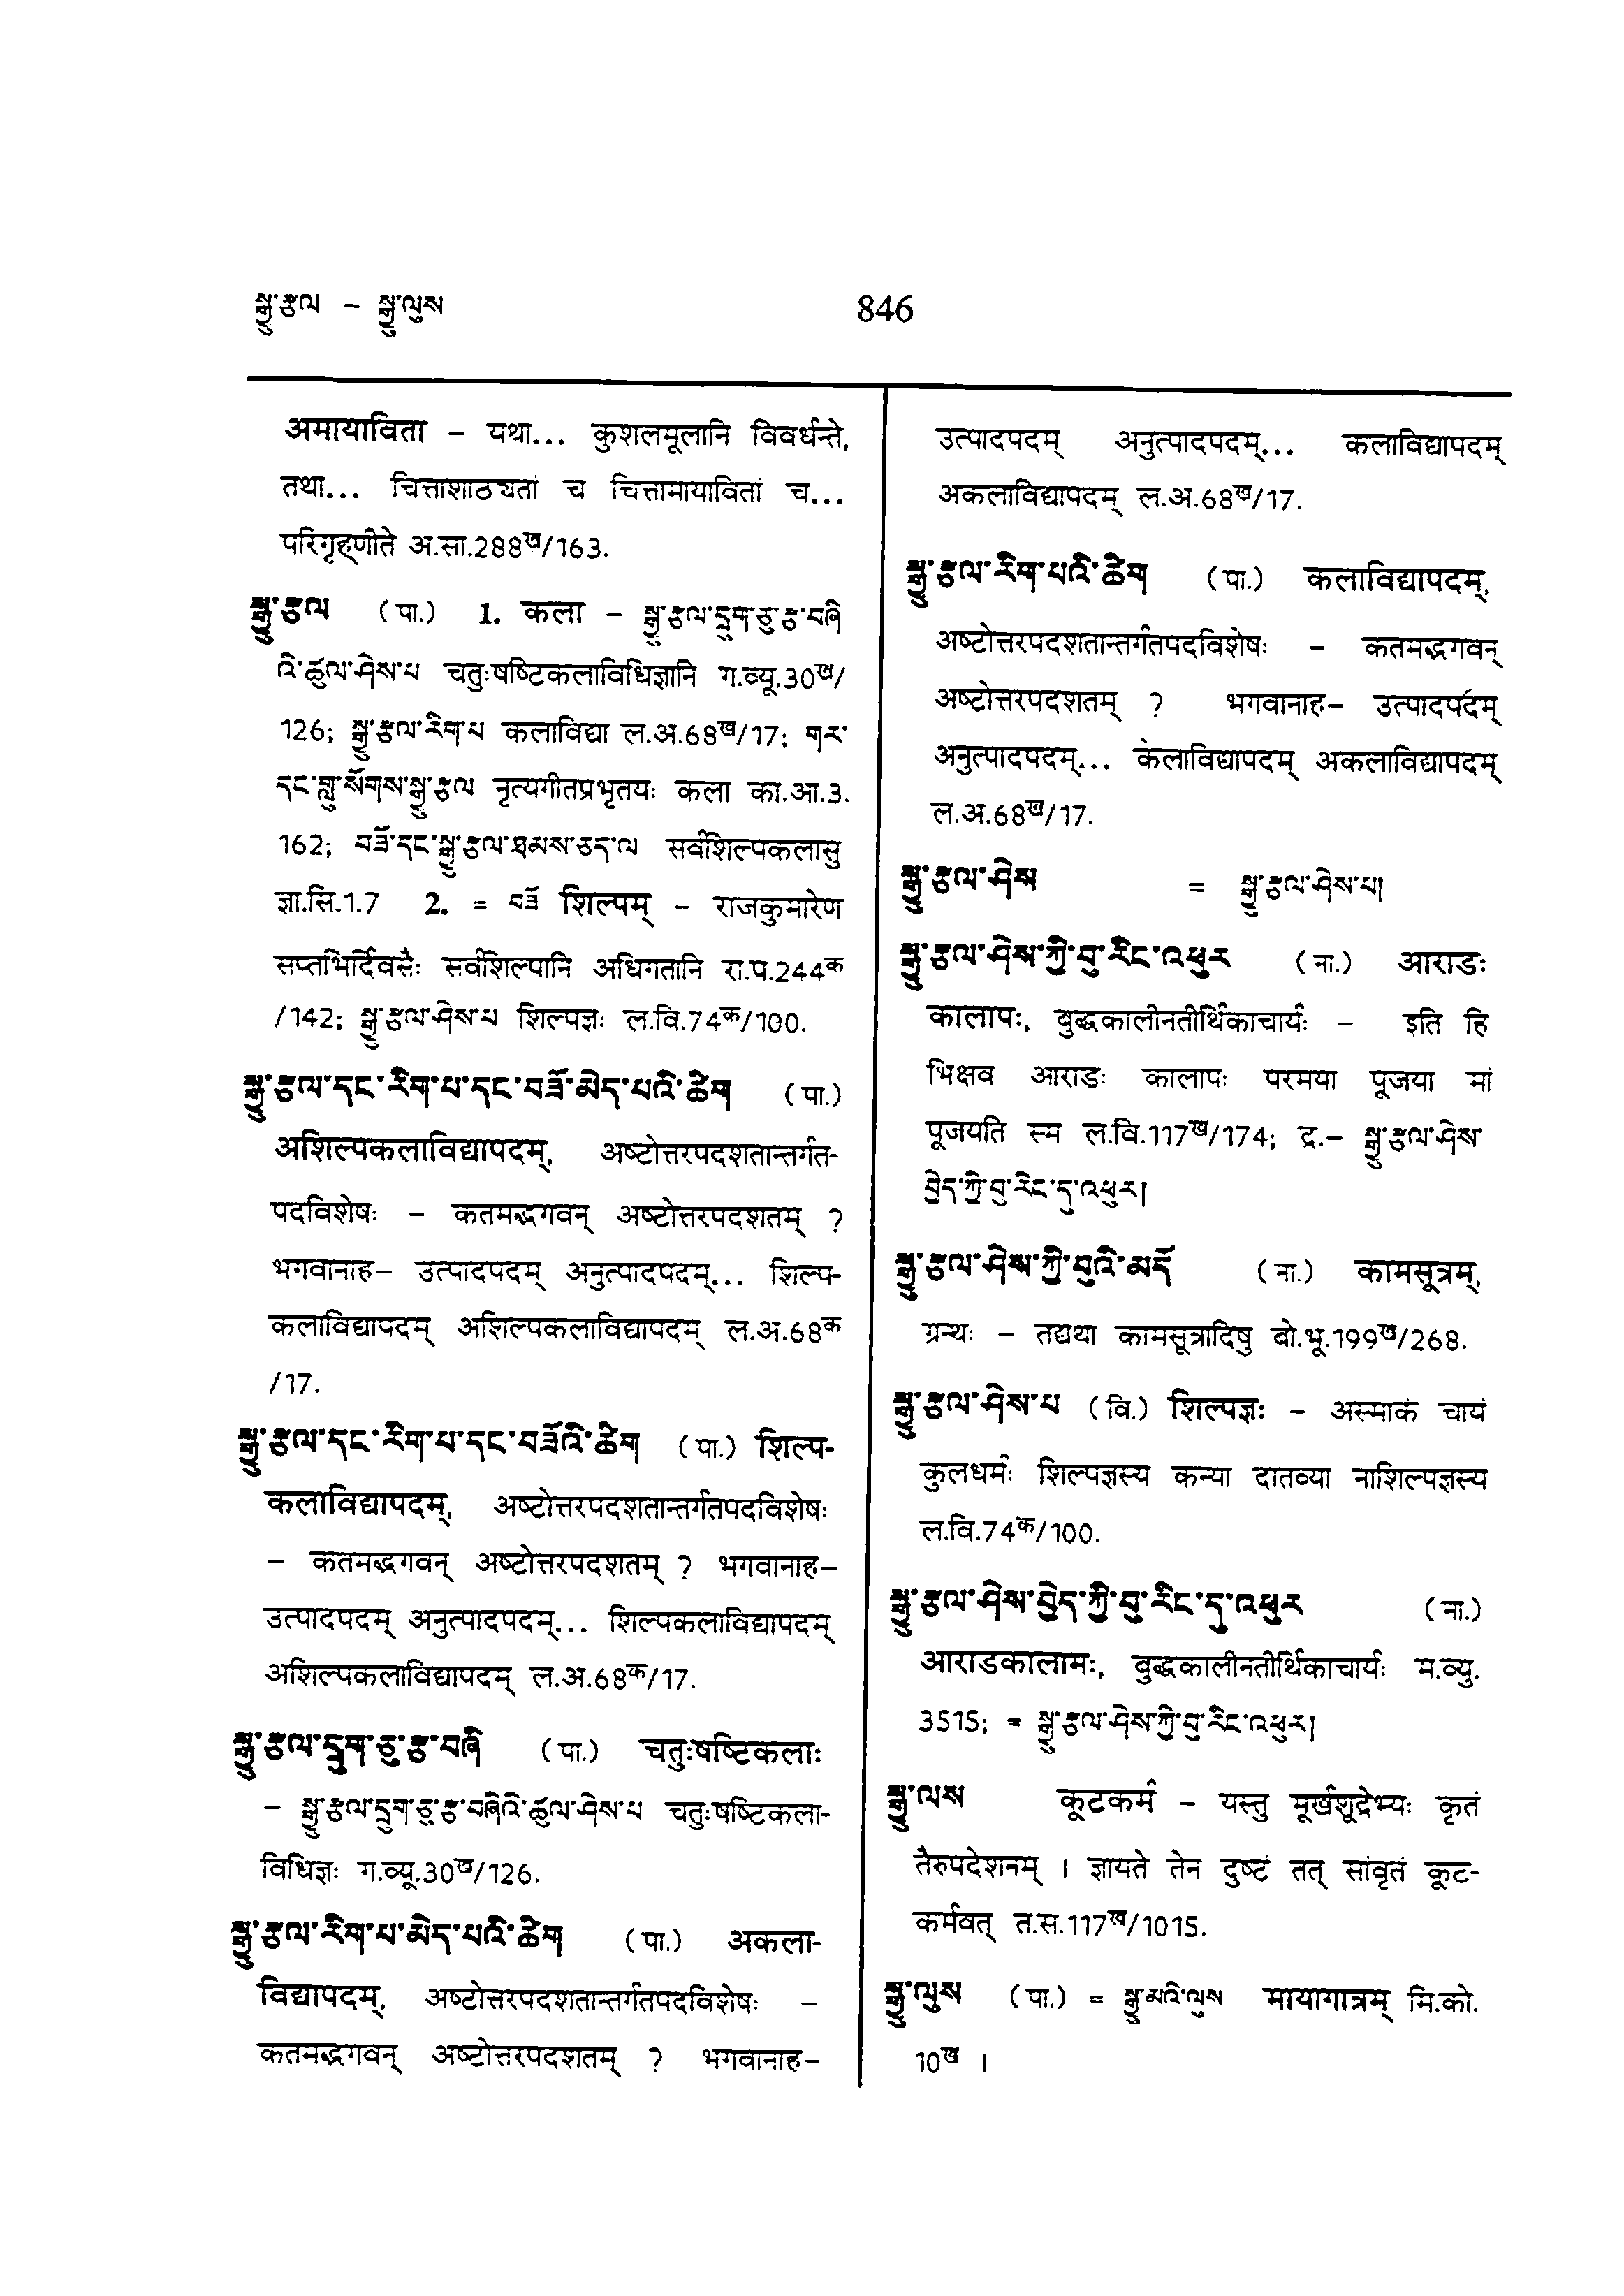 སྒྱུ་རྩལ – སྒྱུ་ལུས
846
अमायाविता – यथा... कुशलमूलानि विवर्धन्ते,
तथा... चित्ताशाठ्यतां च चित्तामायावितां च...
परिगृह्णीते अ.सा.288ख/163.
སྒྱུ་རྩལ (पा.) 1. कला – སྒྱུ་རྩལ་དྲུག་ཅུ་རྩ་བཞི
འི་ཚུལ་ཤེས་པ चतुःषष्टिकलाविधिज्ञानि ग.व्यू.30ख/
126; སྒྱུ་རྩལ་རིག་པ कलाविद्या ल.अ.68ख/17; གར་
དང་གླུ་སོགས་སྒྱུ་རྩལ नृत्यगीतप्रभृतयः कला का.आ.3.
162; བཟོ་དང་སྒྱུ་རྩལ་ཐམས་ཅད་ལ सर्वशिल्पकलासु
ज्ञा.सि.1.7 2. = བཟོ शिल्पम् – राजकुमारेण
सप्तभिर्दिवसैः सर्वशिल्पानि अधिगतानि रा.प.244क
/142; སྒྱུ་རྩལ་ཤེས་པ शिल्पज्ञः ल.वि.74क/100.
སྒྱུ་རྩལ་དང་རིག་པ་དང་བཟོ་མེད་པའི་ཚིག (पा.)
अशिल्पकलाविद्यापदम्, अष्टोत्तरपदशतान्तर्गत-
पदविशेषः – कतमद्भगवन् अष्टोत्तरपदशतम् ?
भगवानाह– उत्पादपदम् अनुत्पादपदम्... शिल्प-
कलाविद्यापदम् अशिल्पकलाविद्यापदम् ल.अ.68क
/17.
སྒྱུ་རྩལ་དང་རིག་པ་དང་བཟོའི་ཚིག (पा.) शिल्प-
कलाविद्यापदम्, अष्टोत्तरपदशतान्तर्गतपदविशेषः
– कतमद्भगवन् अष्टोत्तरपदशतम् ? भगवानाह–
उत्पादपदम् अनुत्पादपदम्... शिल्पकलाविद्यापदम्
अशिल्पकलाविद्यापदम् ल.अ.68क/17.
སྒྱུ་རྩལ་དྲུག་ཅུ་རྩ་བཞི (पा.) चतुःषष्टिकलाः
– སྒྱུ་རྩལ་དྲུག་ཅུ་རྩ་བཞིའི་ཚུལ་ཤེས་པ चतुःषष्टिकला-
विधिज्ञः ग.व्यू.30ख/126.
སྒྱུ་རྩལ་རིག་པ་མེད་པའི་ཚིག (पा.) अकला-
विद्यापदम्, अष्टोत्तरपदशतान्तर्गतपदविशेषः –
कतमद्भगवन् अष्टोत्तरपदशतम् ? भगवानाह–
उत्पादपदम् अनुत्पादपदम्... कलाविद्यापदम्
अकलाविद्यापदम् ल.अ.68ख/17.
སྒྱུ་རྩལ་རིག་པའི་ཚིག (पा.) कलाविद्यापदम्,
अष्टोत्तरपदशतान्तर्गतपदविशेषः – कतमद्भगवन्
अष्टोत्तरपदशतम् ? भगवानाह– उत्पादपदम्
अनुत्पादपदम्... कलाविद्यापदम् अकलाविद्यापदम्
ल.अ.68ख/17.
སྒྱུ་རྩལ་ཤེས = སྒྱུ་རྩལ་ཤེས་པ།
སྒྱུ་རྩལ་ཤེས་ཀྱི་བུ་རིང་འཕུར (ना.) आराडः
कालापः, बुद्धकालीनतीर्थिकाचार्यः – इति हि
भिक्षव आराडः कालापः परमया पूजया मां
पूजयति स्म ल.वि.117ख/174; द्र.– སྒྱུ་རྩལ་ཤེས་
བྱེད་ཀྱི་བུ་རིང་དུ་འཕུར།
སྒྱུ་རྩལ་ཤེས་ཀྱི་བུའི་མདོ (ना.) कामसूत्रम्,
ग्रन्थः – तद्यथा कामसूत्रादिषु बो.भू.199ख/268.
སྒྱུ་རྩལ་ཤེས་པ (वि.) शिल्पज्ञः – अस्माकं चायं
कुलधर्मः शिल्पज्ञस्य कन्या दातव्या नाशिल्पज्ञस्य
ल.वि.74क/100.
སྒྱུ་རྩལ་ཤེས་བྱེད་ཀྱི་བུ་རིང་དུ་འཕུར (ना.)
आराडकालामः, बुद्धकालीनतीर्थिकाचार्यः म.व्यु.
3515; = སྒྱུ་རྩལ་ཤེས་ཀྱི་བུ་རིང་འཕུར།
སྒྱུ་ལས कूटकर्म – यस्तु मूर्खशूद्रेभ्यः कृतं
तैरुपदेशनम् । ज्ञायते तेन दुष्टं तत् सांवृतं कूट-
कर्मवत् त.स.117ख/1015.
སྒྱུ་ལུས (पा.) = སྒྱུ་མའི་ལུས मायागात्रम् मि.को.
10ख ।